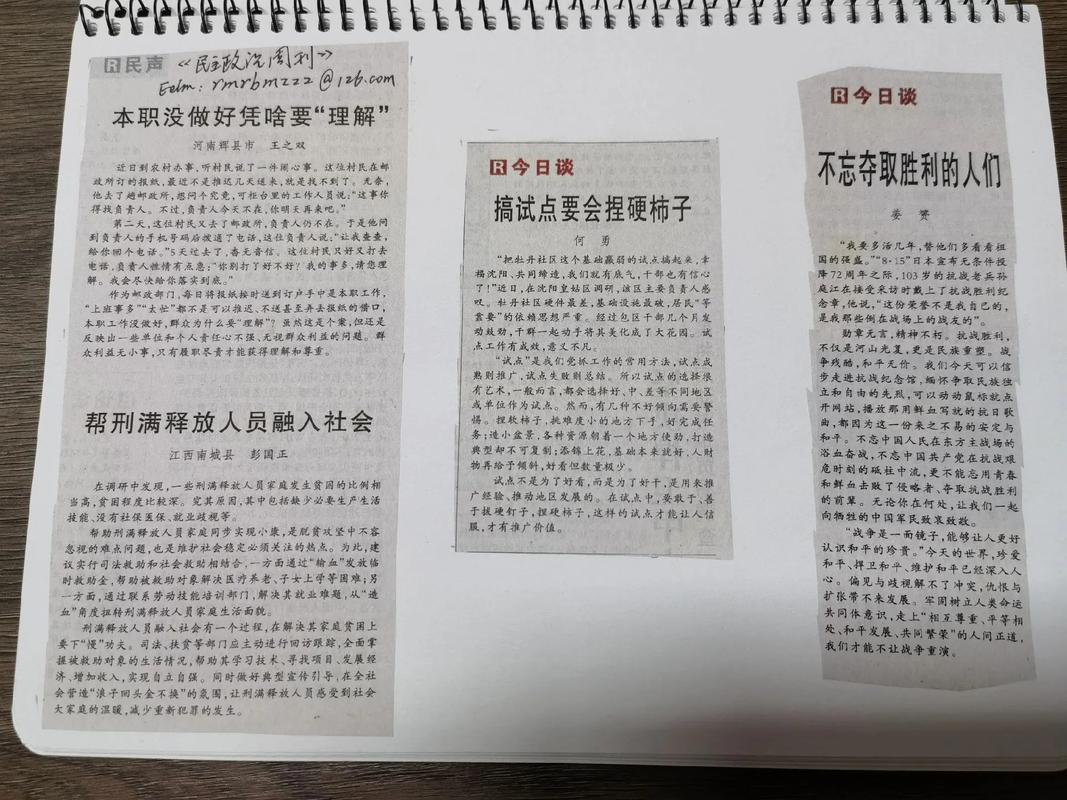 R民声 《民主政治周刊》
rmrbmzzz@126.com
本职没做好凭啥要“理解”
河南辉县市 王之双
近日到农村办事,听村民说了一件闹心事。这位村民在邮
政所订的报纸,最近不是推迟几天送来,就是找不到了。无奈,
他去了趟邮政所,想问个究竟,可柜台里的工作人员说:“这事你
得找负责人。不过,负责人今天不在,你明天再来吧。”
第二天,这位村民又去了邮政所,负责人仍不在。于是他问
到负责人的手机号码后拨通了电话,这位负责人说:“让我查查,
给你回个电话。”5天过去了,杳无音信。这位村民只好又打去
电话,负责人性情有点急:“你别打了好不好?我的事多,请您理
解。我会尽快给你落实到底。”
作为邮政部门,每日将报纸按时送到订户手中是本职工作,
“上班事多”“太忙”都不是可以推迟、不送甚至弄丢报纸的借口,
本职工作没做好,群众为什么要“理解”?虽然这是个案,但还是
反映出一些单位和个人责任心不强、无视群众利益的问题。群
众利益无小事,只有履职尽责才能获得理解和尊重。
帮刑满释放人员融入社会
江西南城县 彭国正
在调研中发现,一些刑满释放人员家庭发生贫困的比例相
当高,贫困程度比较深。究其原因,其中包括缺少必要生产生活
技能、没有社保医保、就业歧视等。
帮助刑满释放人员家庭同步实现小康,是脱贫攻坚中不容
忽视的难点问题,也是维护社会稳定必须关注的热点。为此,建
议实行司法救助和社会救助相结合,一方面通过“输血”发放临
时救助金,帮助被救助对象解决医疗养老、子女上学等困难;另
一方面,通过联系劳动技能培训部门,解决其就业难题,从“造
血”角度扭转刑满释放人员家庭生活面貌。
刑满释放人员融入社会有一个过程,在解决其家庭贫困上
要下“慢”功夫。司法、扶贫等部门应主动进行回访跟踪,全面掌
握被救助对象的生活情况,帮助其学习技术、寻找项目、发展经
济、增加收入,实现自立自强。同时做好典型宣传引导,在全社
会营造“浪子回头金不换”的氛围,让刑满释放人员感受到社会
大家庭的温暖,减少重新犯罪的发生。
R今日谈
搞试点要会捏硬柿子
何 勇
“把牡丹社区这个基础羸弱的试点搞起来,幸
福沈阳、共同缔造,我们就有底气,干部也有信心
了!”近日,在沈阳皇姑区调研,该区主要负责人感
叹。牡丹社区硬件最差,基础设施最破,居民“等
靠要”的依赖思想严重。经过包区干部几个月发
动鼓劲,干群一起动手将其美化成了大花园。试
点工作有成效,意义不凡。
“试点”是我们党抓工作的常用方法,试点成
熟则推广,试点失败则总结。所以试点的选择很
有艺术,一般而言,都会选择好、中、差等不同地区
或单位作为试点。然而,有几种不好倾向需要警
惕。捏软柿,挑难度小的地方下手,好完成任
务;造小盆景,各种资源朝着一个地方使劲,打造
典型却不可复制;添锦上花,基础本来就好,人财
物再给予倾斜,好看但数量极少。
试点不是为了好看,而是为了好干,是用来推
广经验、推动地区发展的。在试点中,要敢于、善
于拔硬钉子,捏硬柿子,这样的试点才能让人信
服,才有推广价值。
R今日谈
不忘夺取胜利的人们
姜 赟
“我要多活几年,替他们多看看祖
国的强盛。”“8·15”日本宣布无条件投
降72周年之际,103岁的抗战老兵孙
庭江在接受采访时戴上了抗战胜利纪
念章,他说,“这份荣誉不是我自己的,
是我那些倒在战场上的战友的”。
勋章无言,精神不朽。抗战胜利,
不仅是河山光复,更是民族重塑。战
争残酷,和平无价。我们今天可以信
步走进抗战纪念馆,缅怀争取民族独
立和自由的先烈,可以动动鼠标就点
开网站,播放那用鲜血写就的抗日歌
曲,都因为这一份来之不易的安定与
和平。不忘中国人民在东方主战场的
浴血奋战,不忘中国共产党在抗战艰
危时刻的砥柱中流,更不能忘用青春
和鲜血击败了侵略者、夺取抗战胜利
的前辈。无论你在何处,让我们一起
向牺牲的中国军民致哀致敬。
“战争是一面镜子,能够让人更好
认识和平的珍贵。”今天的世界,珍爱
和平、捍卫和平、维护和平已经深入人
心。偏见与歧视解不了冲突,仇恨与
扩张带不来发展。牢固树立人类命运
共同体意识,走上“相互尊重、平等相
处、和平发展、共同繁荣”的人间正道,
我们才能不让战争重演。